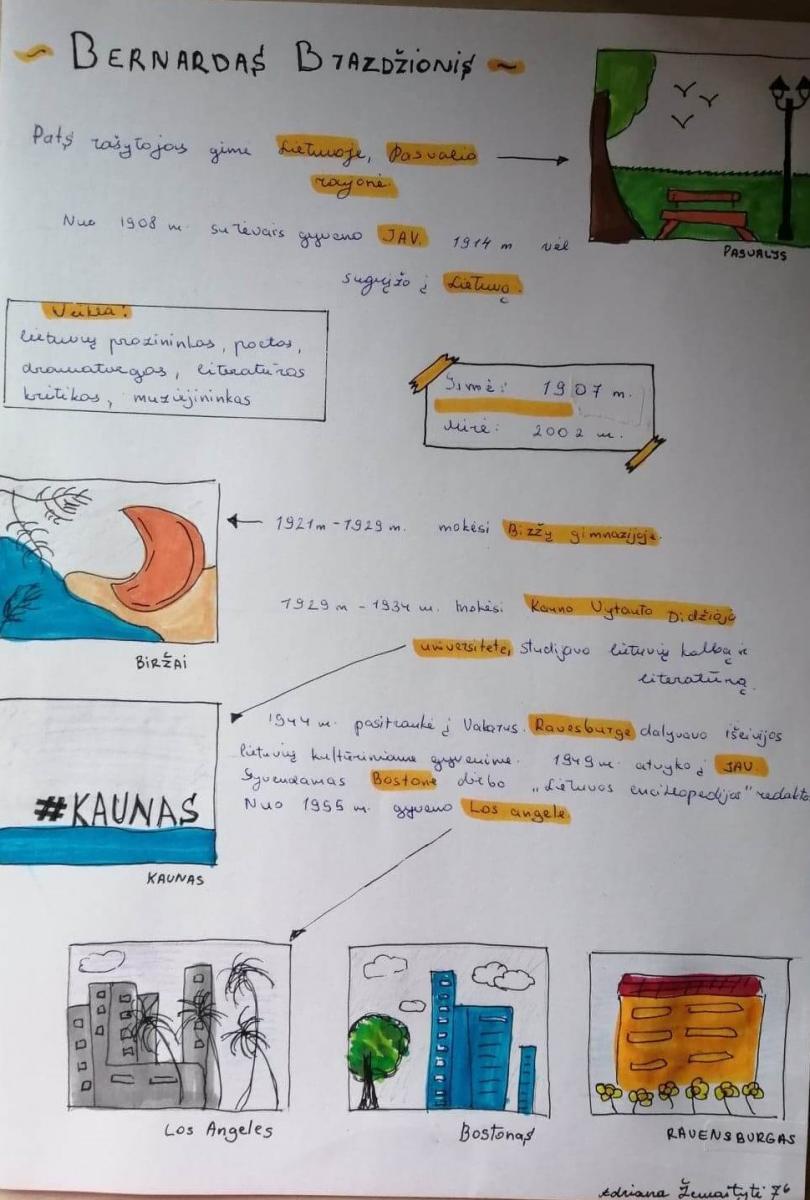 ~ BERNARDAS BRAZDŽIONIS ~
Pats rašytojas gimė Lietuvoje, Pasvalio
rajone.
PASVALYS
Nuo 1908 m. su tėvais gyveno JAV. 1914 m vėl
sugrįžo į Lietuvą.
Veikla:
lietuvių prozininkas, poetas,
dramaturgas, literatūros
kritikas, muziejininkas
Gimė: 1907 m.
Mirė: 2002 m.
1921m-1929 m. mokėsi Biržų gimnazijoje.
BIRŽAI
1929 m - 1934 m. mokėsi Kauno Vytauto Didžiojo
universitete, studijavo lietuvių kalbą ir
literatūrą.
1944 m. pasitraukė į Vakarus. Ravesburge dalyvavo išeivijos
lietuvių kultūriniame gyvenime. 1949m. atvyko į JAV.
Gyvendamas Bostone dirbo „Lietuvos enciklopedijos"
Nuo 1955 m. gyveno Los angele.
#KAUNAS
KAUNAS
Los Angeles
Bostonas
RAVENSBURGAS
Adriana Žemaitytė